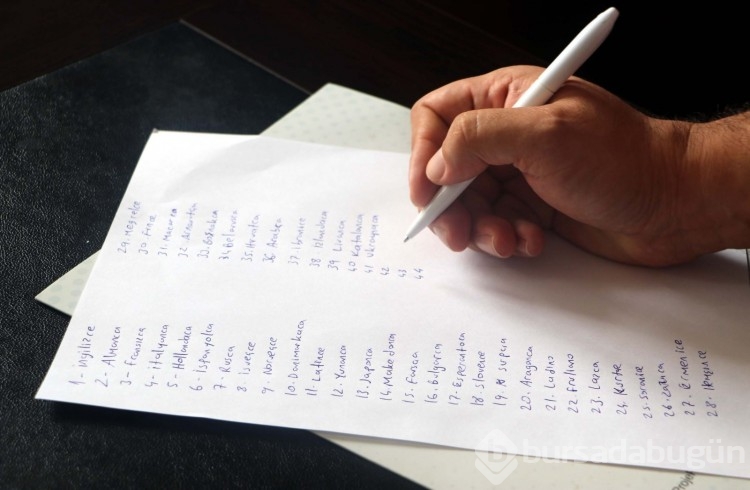 1 - ingilizce
2 - Almanca
3 - Fransızca
4 - italyanca
5 - Hollandaca
6 - İspanyolca
7 - Rusça
8 - İsveçce
9 - Norveçce
10. Danimarkaca
11. Latince
12. Yunanca
13. Japonca
14. Makedonca
15. Farsça
16. Bulgarca
17. Esperantoca
18. Slovence
19.
20. Aragonca
21. Ladino
22. Friulano
23. Lazca
24. Kürtçe
25.
26.
27. Ermenice
28.
29.
30.
31. Macarca
32.
33. Boşnakça
34.
35. Hırvatça
36. Arapça
37. ibranice
38.
39.
40 Katalanca
41 Ukraynaca
42
43
44
bursadabugün
Proje